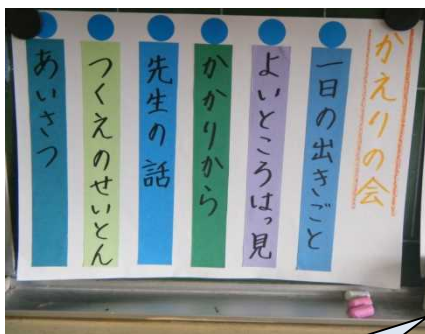 かえりの会
一日の出きごと
よいところはっ見
かかりから
先生の話
つくえのせいとん
あいさつ